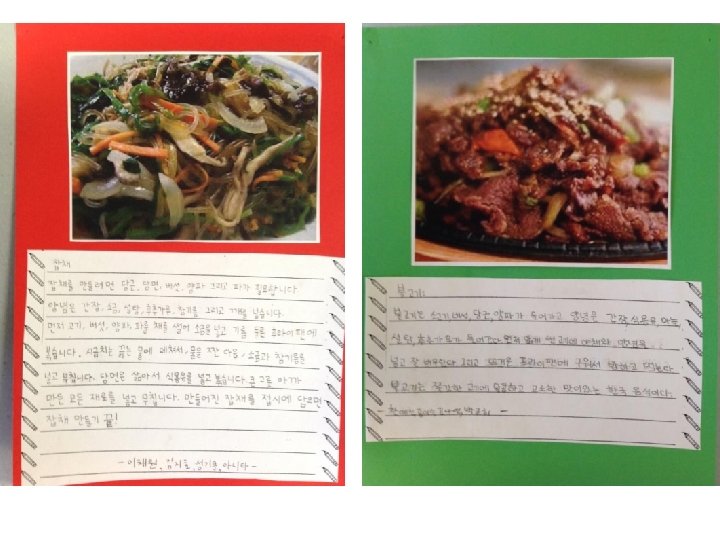 잡채
잡채를 만들려면 당근, 당면, 버섯, 양파 그리고 파가 필요합니다
양념은 간장, 소금, 설탕, 후추가루, 참기름 그리고 넣습니다.
먼저 고기, 버섯, 양파, 파를 채를 썰어 소금을 넣고 기름 두른 후라이팬에
볶습니다. 시금치는 끓는 물에 데쳐서, 물을 짠 다음, 소금과 참기름을
넣고 무칩니다. 당면은 삶아서 식용유를 넣고 볶습니다. 그 아까
만든 모든 재료를 넣고 무칩니다. 만들어진 잡채를 접시에 담으면
잡채 만들기 끝!
- 이채원, 김지호, 아니타 -
불고기:
불고기는 소고기, 버섯, 당근, 양파가 들어가고 양념은 간장, 식용유, 마늘,
설탕, 후추가루가 들어간다. 먼저 고기에 야채와 양념을
넣고 잘 배무린다. 그리고 뜨거운 프라이팬에 구워서
불고기는 고기에 달콤하고 고소한 맛이있는 한국 음식이다.